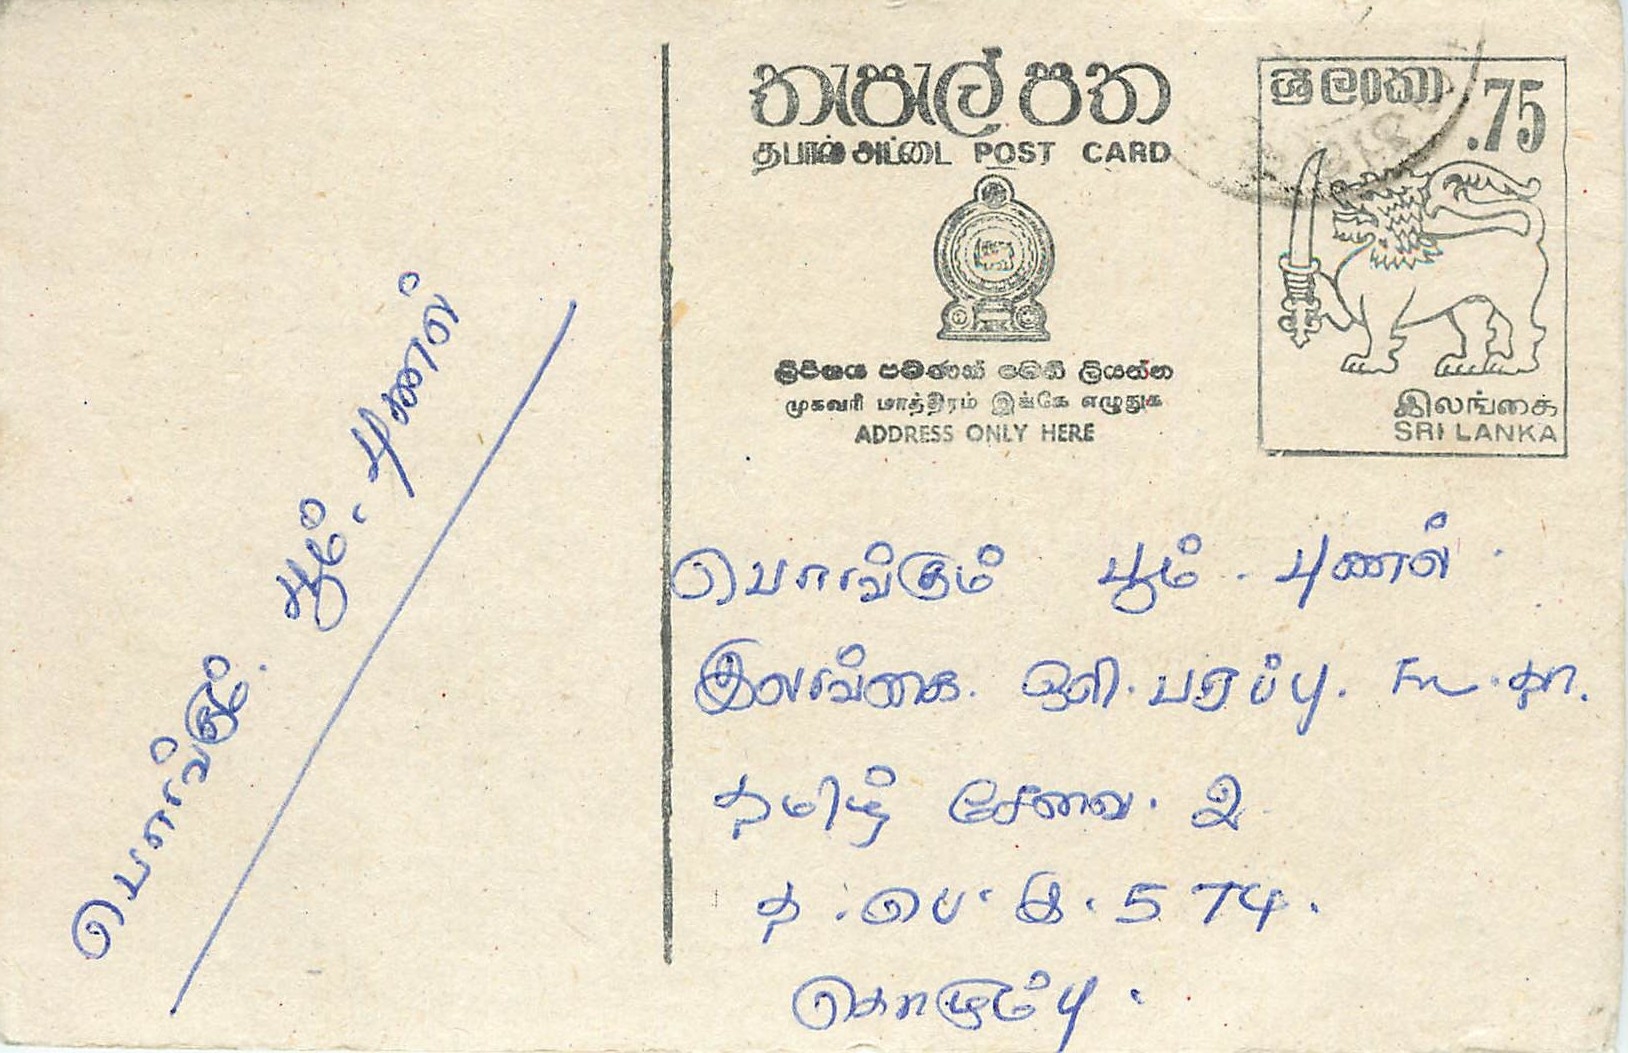 பொங்கும். பூம். புணல்
තැපැල් පත
தபால் அட்டை POST CARD
ලිපිනය පමණක් මෙහි ලියන්න
முகவரி மாத்திரம் இங்கே எழுதுக
ADDRESS ONLY HERE
ශ්‍රී ලංකා .75
இலங்கை
SRI LANKA
பொங்கும் பூம். புணல்.
இலங்கை. ஒலி. பரப்பு. கூ. தா.
தமிழ் சேவை. 2
த. பெ. இ. 574.
கொழும்பு.